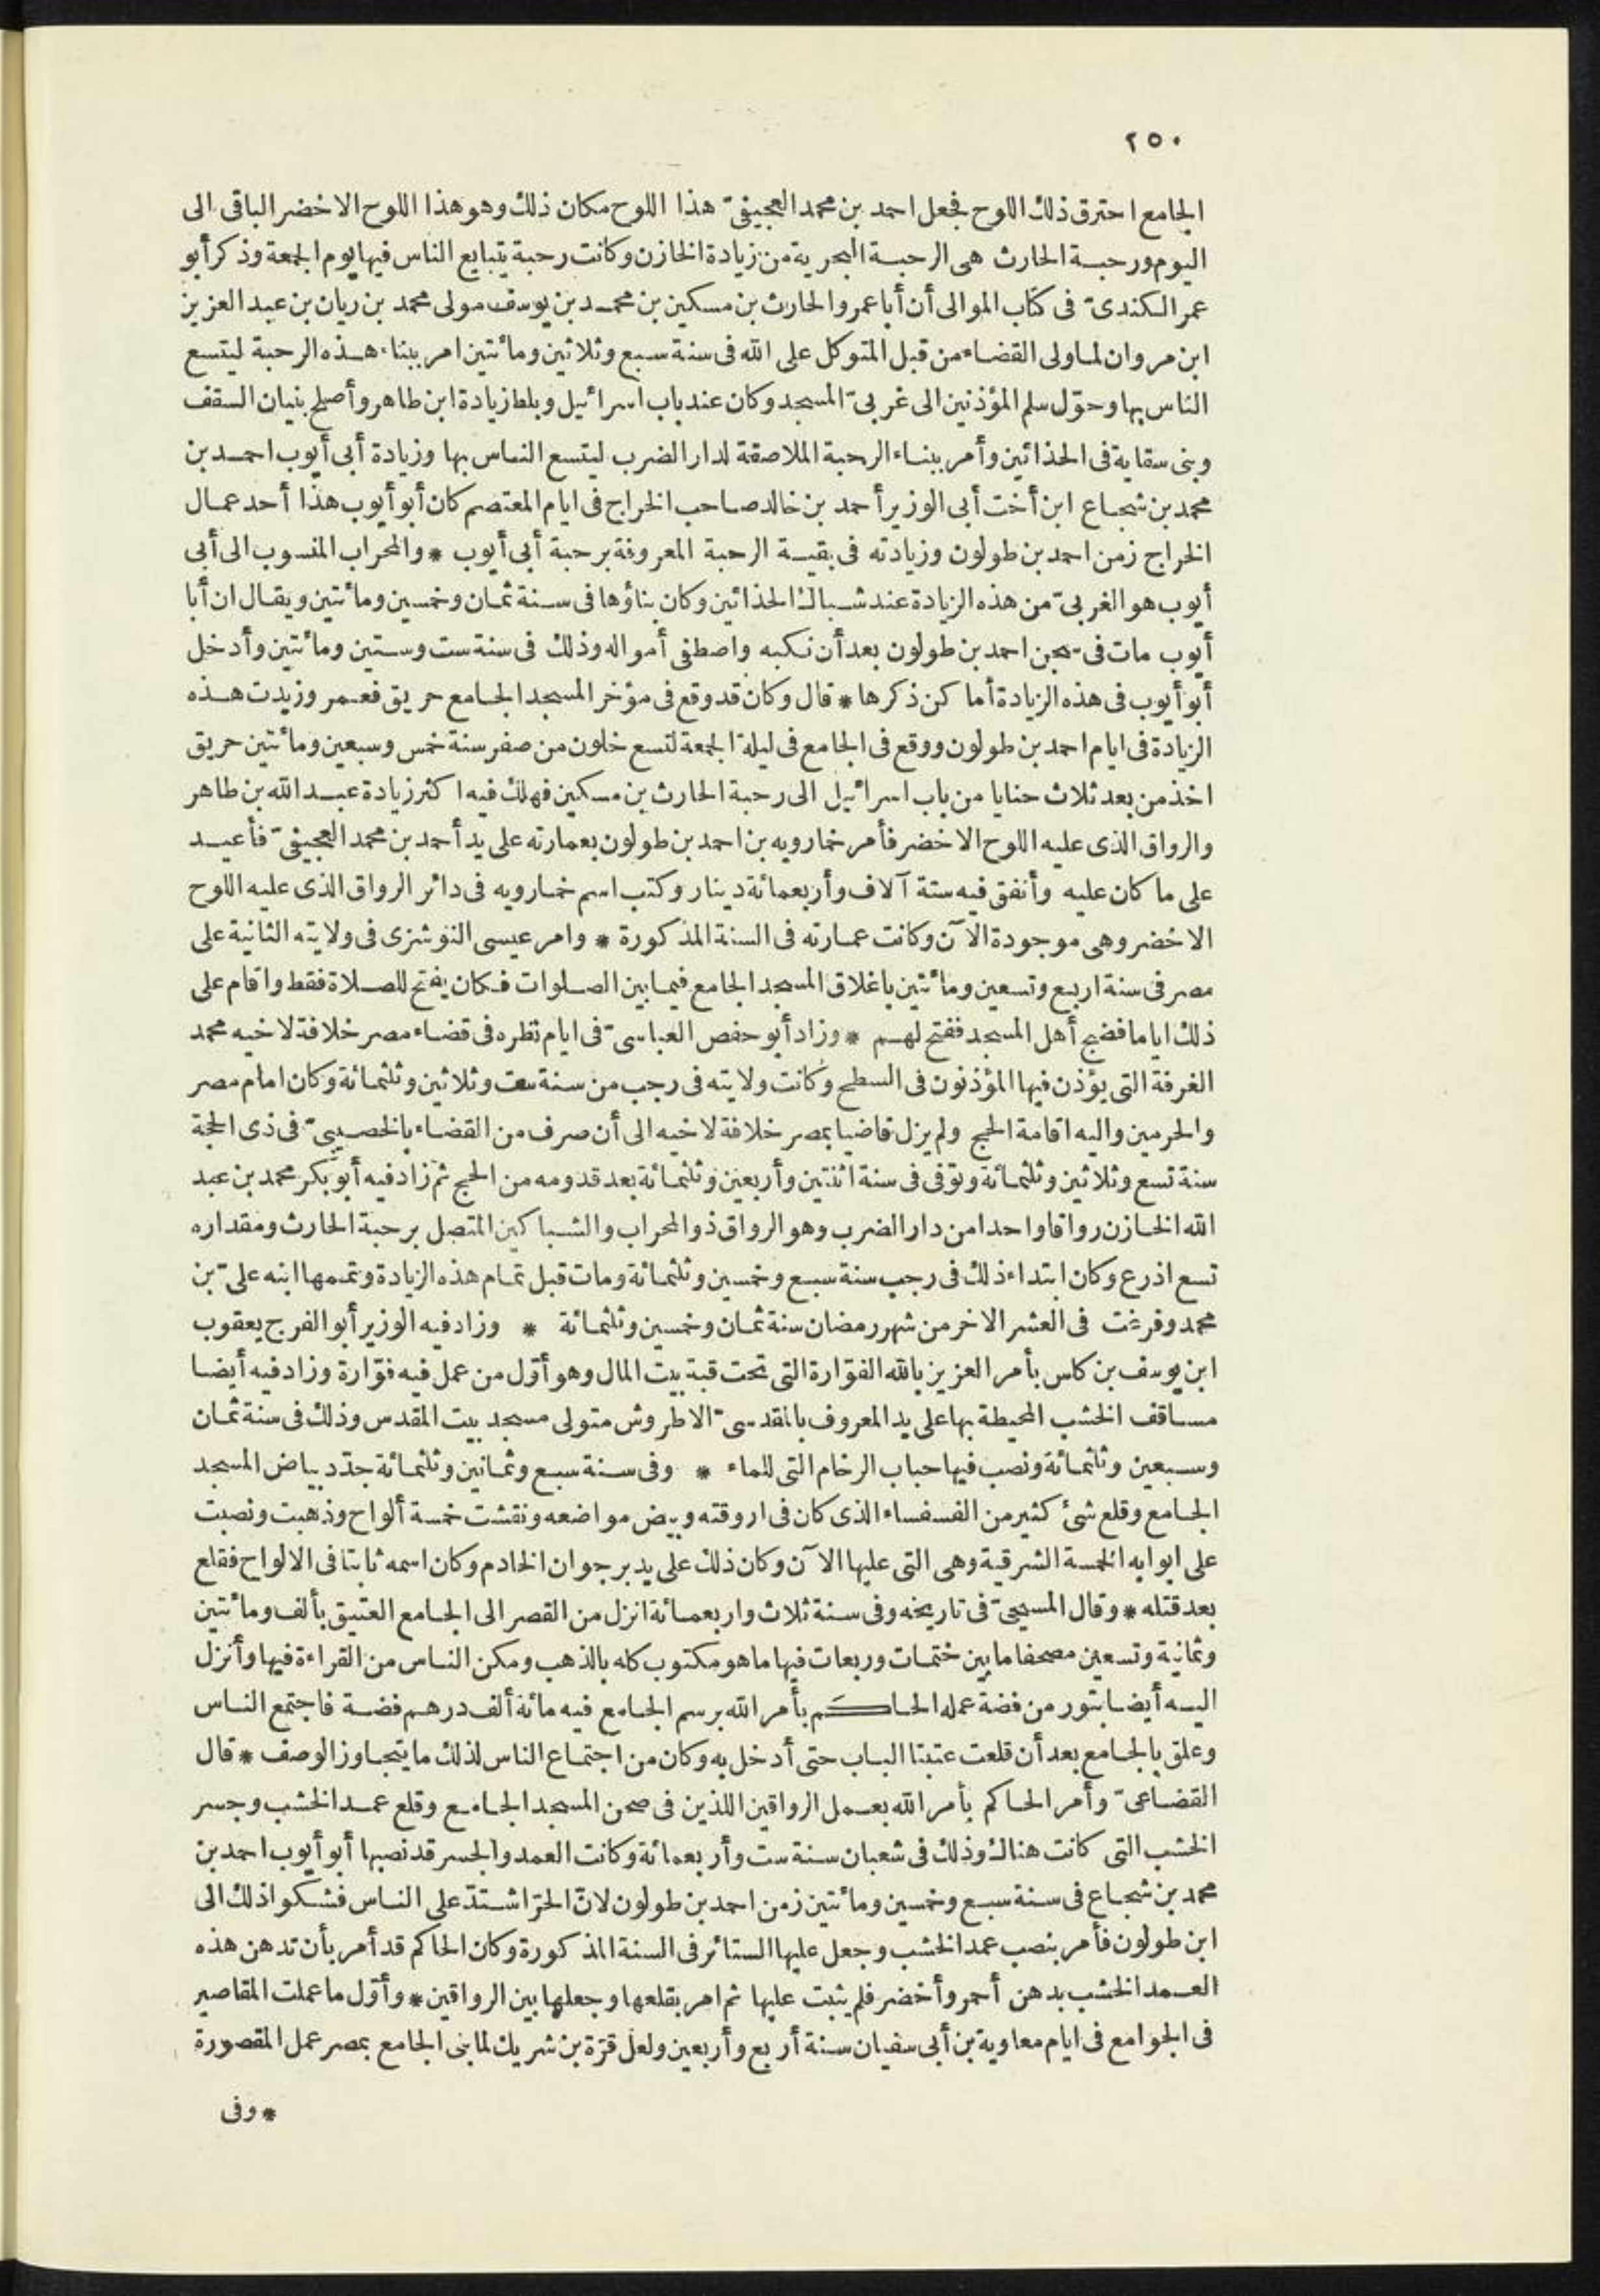 ٢٥٠
الجامع احترق ذلك اللوح فجعل احمد بن محمد العجيفىّ هذا اللوح مكان ذلك وهو هذا اللوح الاخضر الباقى الى
اليوم ورحبة الحارث هى الرحبة البحرية من زيادة الخازن وكانت رحبة يتبايع الناس فيها يوم الجمعة وذكر أبو
عمر الكندىّ فى كتاب الموالى أن أبا عمرو الحارث بن مسكين بن محمد بن يوسف مولى محمد بن ريان بن عبد العزيز
ابن مروان لما ولى القضاء من قبل المتوكل على الله فى سنة سبع وثلاثين ومائتين امر ببناء هذه الرحبة ليتسع
الناس بها وحوّل سلم المؤذنين الى غربىّ المسجد وكان عند باب اسرائيل وبلط زيادة ابن طاهر وأصلح بنيان السقف
وبنى سقاية فى الحذائين وأمر ببناء الرحبة الملاصقة لدار الضرب ليتسع الناس بها وزيادة أبى أيوب احمد بن
محمد بن شجاع ابن أخت أبى الوزير أحمد بن خالد صاحب الخراج فى ايام المعتصم كان أبو أيوب هذا أحد عمال
الخراج زمن احمد بن طولون وزيادته فى بقية الرحبة المعروفة برحبة أبى أيوب * والمحراب المنسوب الى أبى
أيوب هو الغربىّ من هذه الزيادة عند شباك الحذائين وكان بناؤها فى سنة ثمان وخمسين ومائتين ويقال ان أبا
أيوب مات فى سجن احمد بن طولون بعد أن نكبه واصطفى أمواله وذلك فى سنة ست وستين ومائتين وأدخل
أبو أيوب فى هذه الزيادة أماكن ذكرها * قال وكان قد وقع فى مؤخر المسجد الجامع حريق فعمر وزيدت هذه
الزيادة فى ايام احمد بن طولون ووقع فى الجامع فى ليلة الجمعة لتسع خلون من صفر سنة خمس وسبعين ومائتين حريق
اخذ من بعد ثلاث حنايا من باب اسرائيل الى رحبة الحارث بن مسكين فهلك فيه اكثر زيادة عبد الله بن طاهر
والرواق الذى عليه اللوح الاخضر فأمر خمارويه بن احمد بن طولون بعمارته على يد أحمد بن محمد العجيفىّ فأعيد
على ما كان عليه وأنفق فيه ستة آلاف وأربعمائة دينار وكتب اسم خمارويه فى دائر الرواق الذى عليه اللوح
الاخضر وهى موجودة الآن وكانت عمارته فى السنة المذكورة * وامر عيسى النوشزى فى ولايته الثانية على
مصر فى سنة اربع وتسعين ومائتين باغلاق المسجد الجامع فيما بين الصلوات فكان يفتح للصلاة فقط واقام على
ذلك اياما فضج أهل المسجد ففتح لهم * وزاد أبو حفص العباسىّ فى ايام نظره فى قضاء مصر خلافة لاخيه محمد
الغرفة التى يؤذن فيها المؤذنون فى السطح وكانت ولايته فى رجب من سنة ست وثلاثين وثلثمائة وكان امام مصر
والحرمين واليه اقامة الحج ولم يزل قاضيا بمصر خلافة لاخيه الى أن صرف من القضاء بالخصيبىّ فى ذى الحجة
سنة تسع وثلاثين وثلثمائة وتوفى فى سنة اثنتين وأربعين وثلثمائة بعد قدومه من الحج ثم زاد فيه أبو بكر محمد بن عبد
الله الخازن رواقا واحدا من دار الضرب وهو الرواق ذو المحراب والشباكين المتصل برحبة الحارث ومقداره
تسع اذرع وكان ابتداء ذلك فى رجب سنة سبع وخمسين وثلثمائة ومات قبل تمام هذه الزيادة وتممها ابنه علىّ بن
محمد وفرغت فى العشر الاخر من شهر رمضان سنة ثمان وخمسين وثلثمائة * وزاد فيه الوزير أبو الفرج يعقوب
ابن يوسف بن كلس بأمر العزيز بالله الفوّارة التى تحت قبة بيت المال وهو أوّل من عمل فيه فوّارة وزاد فيه أيضا
مساقف الخشب المحيطة بها على يد المعروف بالمقدسىّ الاطروش متولى مسجد بيت المقدس وذلك فى سنة ثمان
وسبعين وثلثمائة ونصب فيها حباب الرخام التى للماء * وفى سنة سبع وثمانين وثلثمائة جدّد بياض المسجد
الجامع وقلع شئ كثير من الفسفساء الذى كان فى اروقته وبيض مواضعه ونقشت خمسة ألواح وذهبت ونصبت
على ابوابه الخمسة الشرقية وهى التى عليها الآن وكان ذلك على يد برجوان الخادم وكان اسمه ثابتا فى الالواح فقلع
بعد قتله * وقال المسبحىّ فى تاريخه وفى سنة ثلاث واربعمائة انزل من القصر الى الجامع العتيق بألف ومائتين
وثمانية وتسعين مصحفا ما بين ختمات وربعات فيها ما هو مكتوب كله بالذهب ومكن الناس من القراءة فيها وأنزل
اليه أيضا بتور من فضة عمله الحاكم بأمر الله برسم الجامع فيه مائة ألف درهم فضة فاجتمع الناس
وعلق بالجامع بعد أن قلعت عتبتا الباب حتى أدخل به وكان من اجتماع الناس لذلك ما يتجاوز الوصف * قال
القضاعىّ وأمر الحاكم بأمر الله بعمل الرواقين اللذين فى صحن المسجد الجامع وقلع عمد الخشب وجسر
الخشب التى كانت هناك وذلك فى شعبان سنة ست وأربعمائة وكانت العمد والجسر قد نصبها أبو أيوب احمد بن
محمد بن شجاع فى سنة سبع وخمسين ومائتين زمن احمد بن طولون لانّ الحرّ اشتدّ على الناس فشكوا ذلك الى
ابن طولون فأمر بنصب عمد الخشب وجعل عليها الستائر فى السنة المذكورة وكان الحاكم قد أمر بأن تدهن هذه
العمد الخشب بدهن أحمر وأخضر فلم يثبت عليها ثم امر بقلعها وجعلها بين الرواقين * وأوّل ما عملت المقاصير
فى الجوامع فى ايام معاوية بن أبى سفيان سنة أربع وأربعين ولعل قرّة بن شريك لما بنى الجامع بمصر عمل المقصورة
* وفى